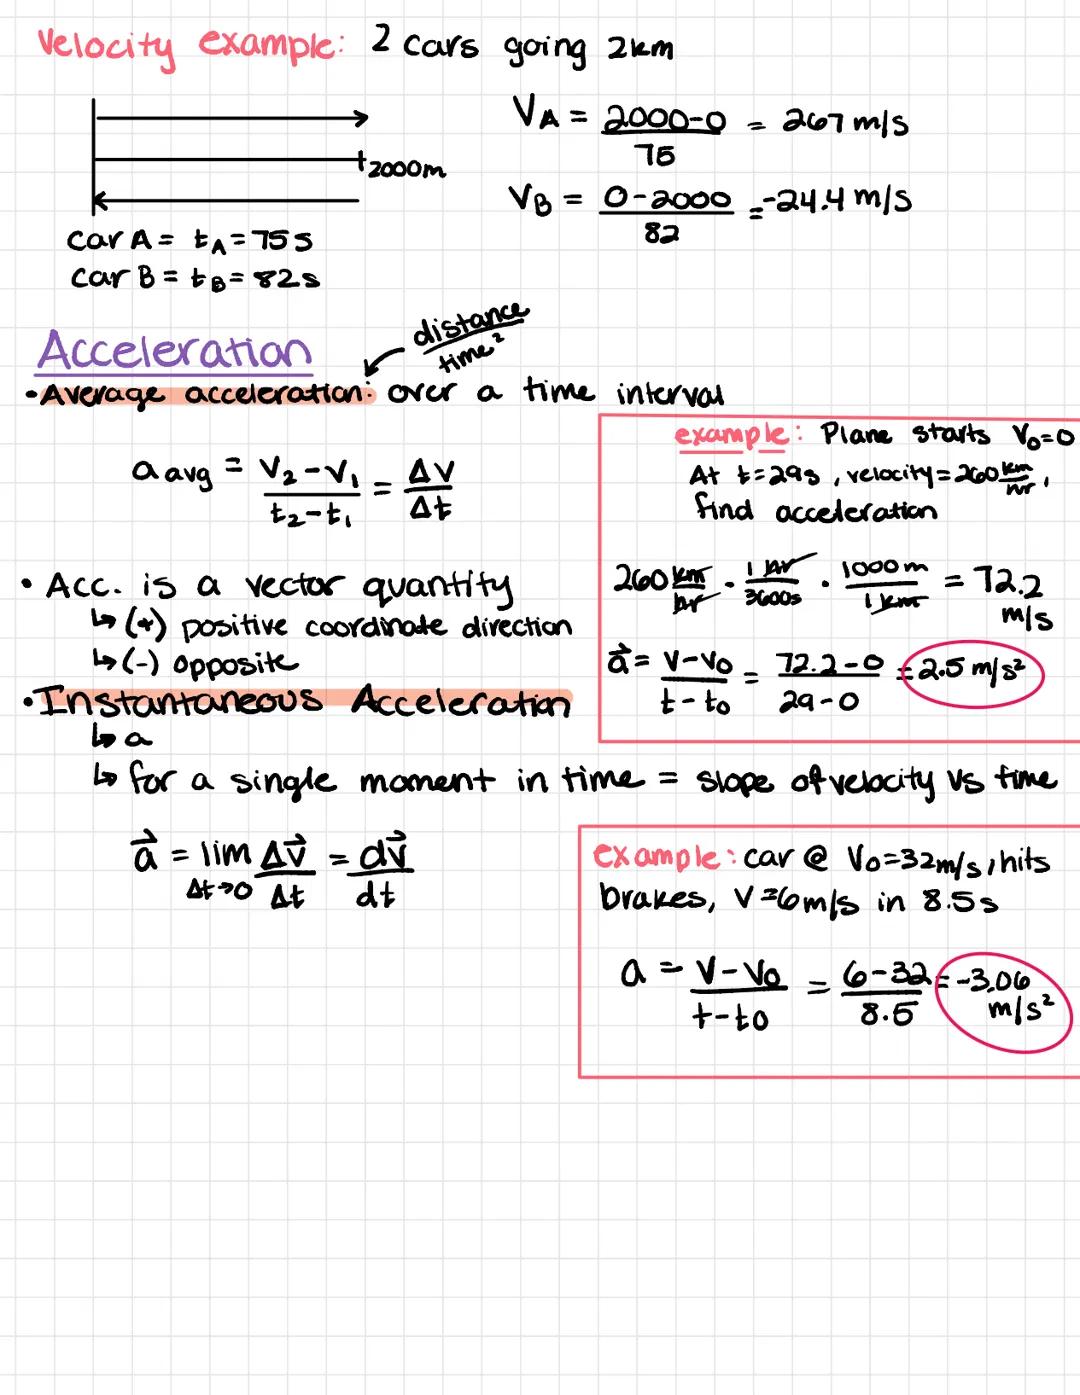 Velocity example: 2 cars going 2km
VA = 2000-0 / 75 = 267 m/s
2000m
VB = 0-2000 / 82 = -24.4 m/s
car A = tA = 75s
car B = tB = 82s
Acceleration
distance / time²
• Average acceleration: over a time interval
a avg = V2-V1 / t2-t1 = ΔV / Δt
example: Plane starts V0=0
At t=29s, velocity=260 km/hr,
find acceleration
260 km/hr · 1 hr/3600s · 1000m/1 km = 72.2 m/s
a⃗ = V-V0 / t-t0 = 72.2-0 / 29-0 = 2.5 m/s²
• Acc. is a vector quantity
↳ (+) positive coordinate direction
↳ (-) opposite
• Instantaneous Acceleration
↳ a
↳ for a single moment in time = slope of velocity vs time
a⃗ = lim Δt→0 Δv⃗ / Δt = dv⃗ / dt
example: car @ V0=32m/s, hits
brakes, V=6m/s in 8.5s
a = V-V0 / t-t0 = 6-32 / 8.5 = -3.06 m/s²